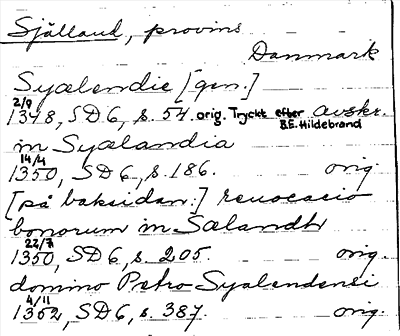 Själland, provins
Danmark
Syælendie [gen.]
2/9
1348, SD 6, s. 54. orig. Tryckt efter avskr.
B.E. Hildebrand
in Syælandia
14/4
1350, SD 6, s. 186. orig.
[på baksidan:] reuocacio
bonorum in Sælandh
22/7
1350, SD 6, s. 205. orig.
domino Petro Syalendensi
4/11
1352, SD 6, s. 387. orig.